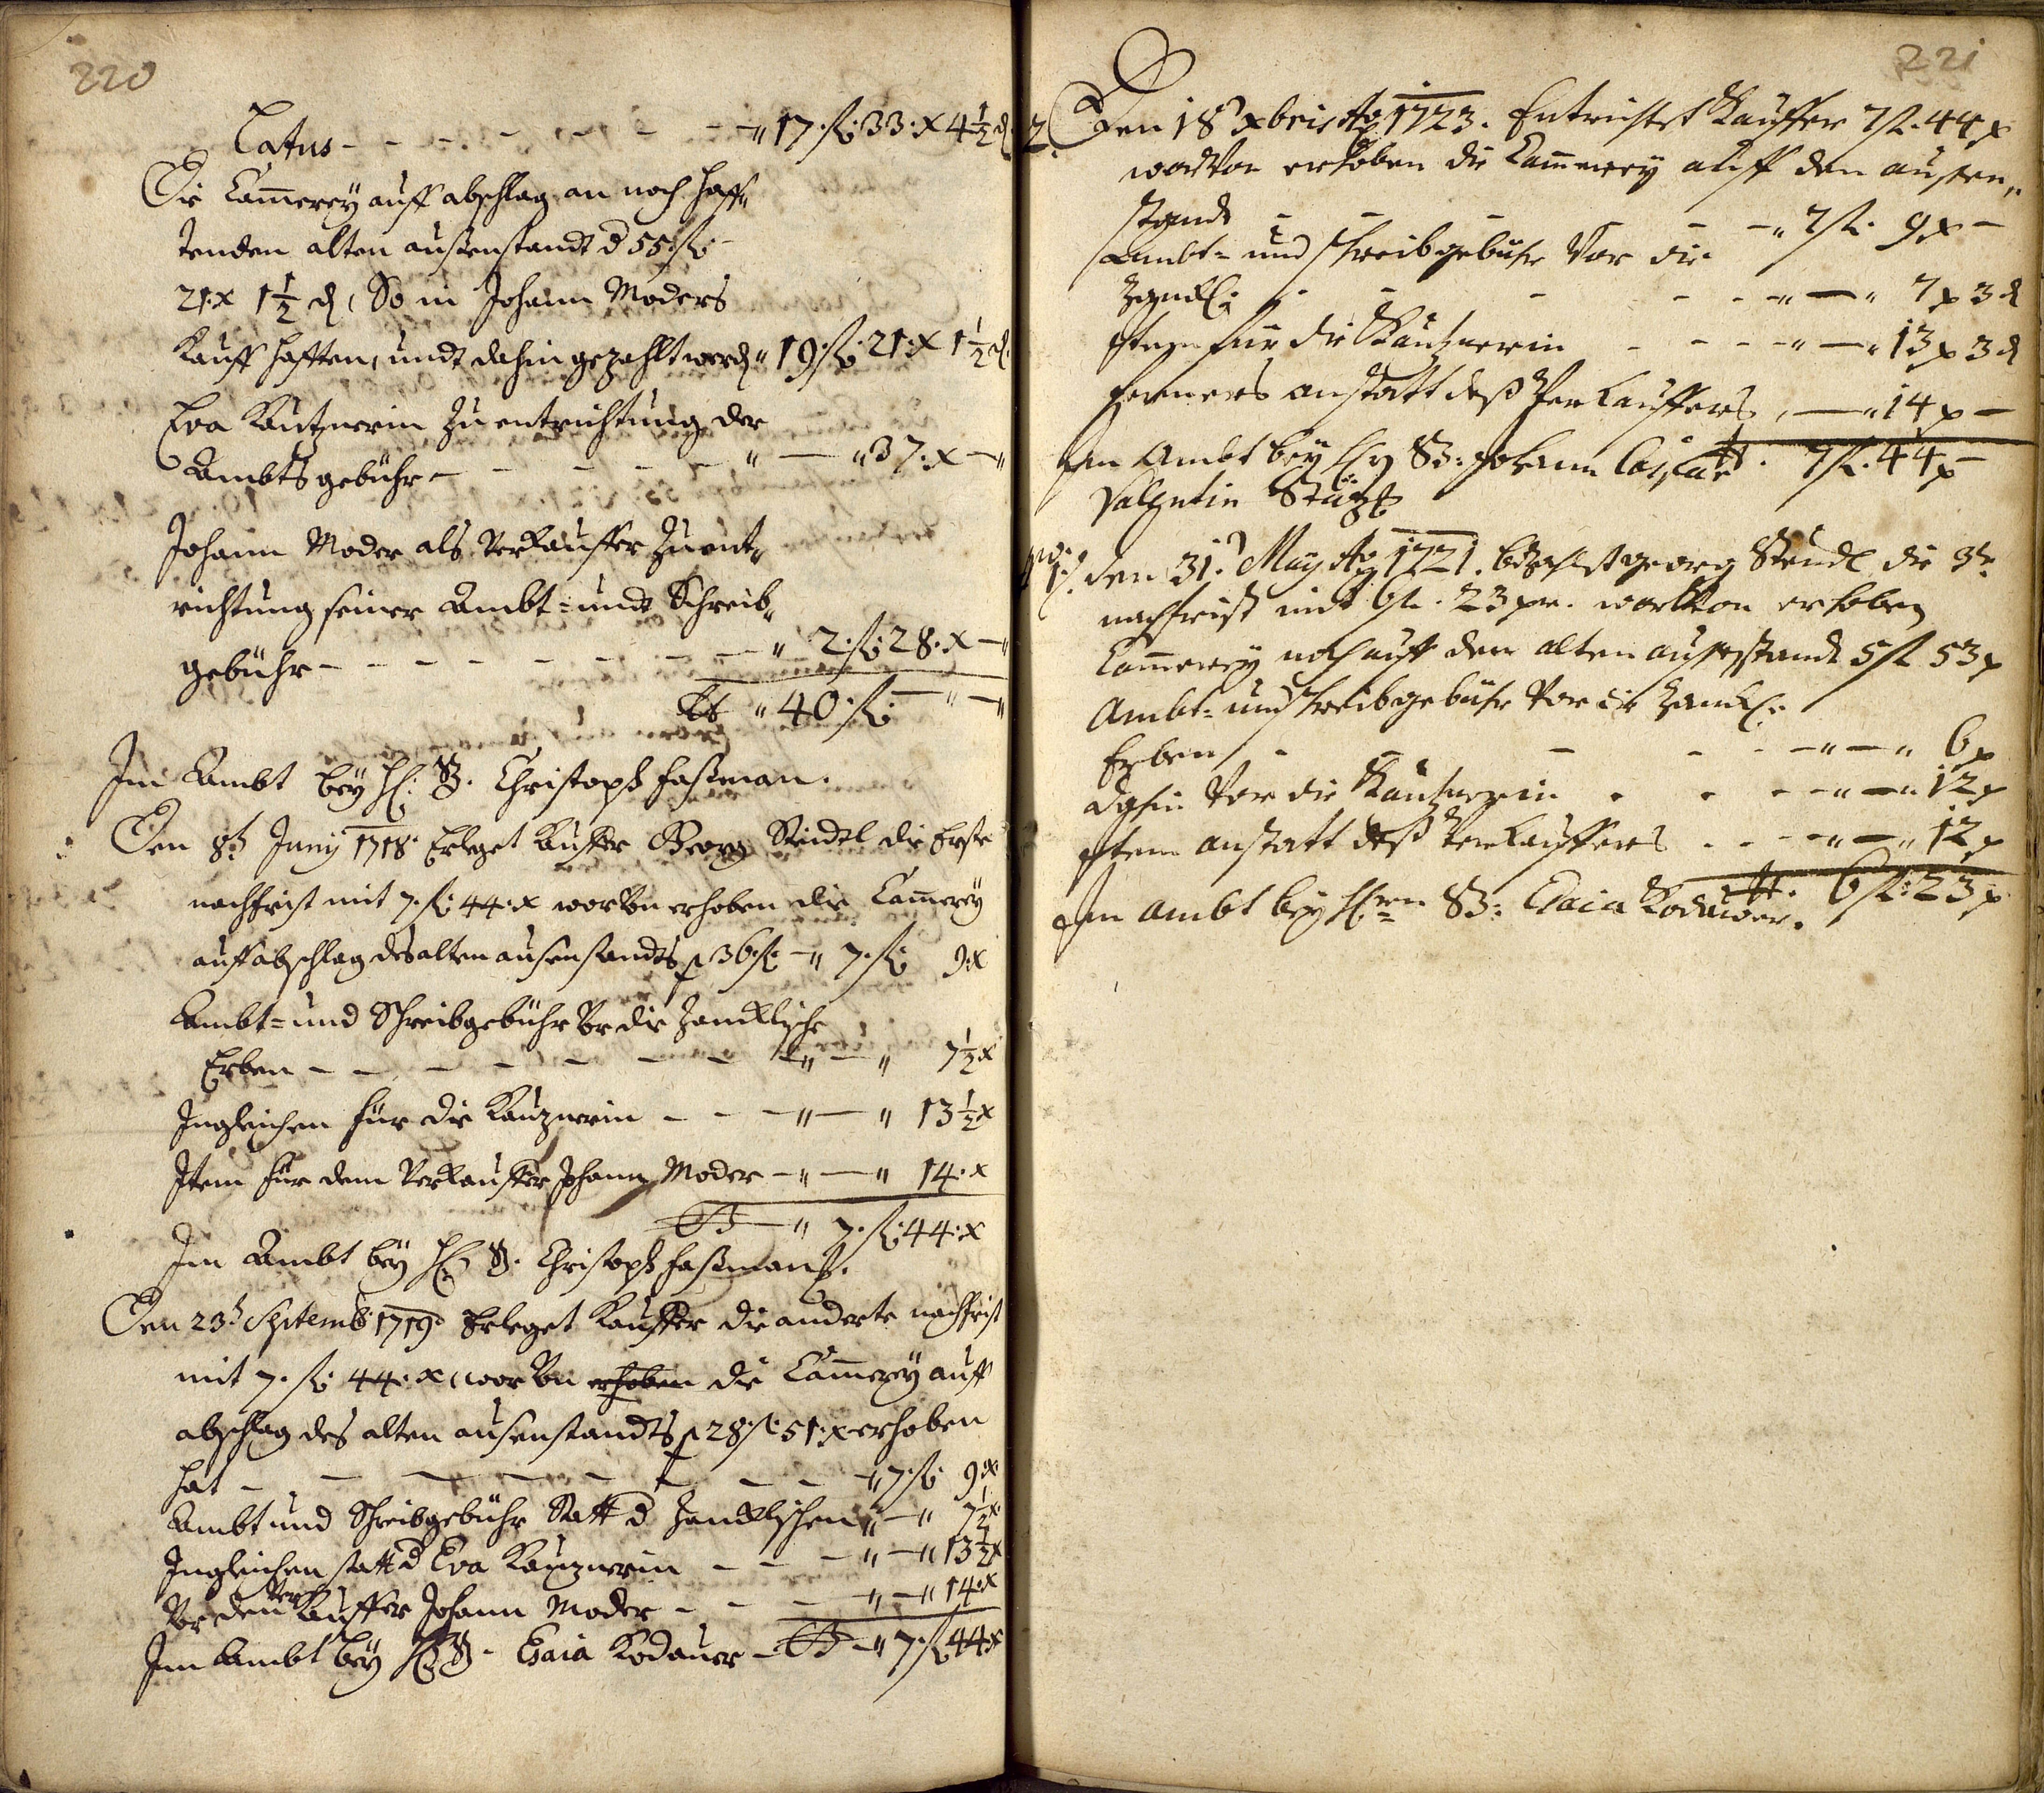 220
Latus - - - - - - - " 17. fl: 33. x 4 1/2 d
Die Cam̅erey auff abschlag an noch haff„
tenden alten außenstandt d 55. fl:
21. x 1 1/2 d, So in Johann Moders
Kauff hafften, undt dahin gezahlt werd " 19. fl: 21. x 1 1/2 d
Eva Kautznerin Zu entrichtung der
Ambtsgebühr - - - - - - " — " 37. x —"
Johann Moder als Verkauffer Zu ent„
richtung seiner Ambt= undt Schreib„
gebühr - - - - - - - - " 2. fl: 28. x —"
" 40. fl: — " —"
Im Ambt bey H: B. Christoph Faßman.
Den 8t Juny 1718. Erleget Kauffer Georg Steidel die Erste
nachfrist mit 7. fl: 44. x worvon erhoben die Cam̅erey
auff abschlag des alten ausenstandts p 36. fl: — " 7. fl: 9. x
Ambt= und Schreibgebühr vor die Zandlische
Erben - - - - - - - - " — " 7 1/2 x
Ingleichen für die Kautznerin - - - " — " 13 1/2 x
Item für dem Verkauffer Johann Moder - " — " 14. x
" 7. fl: 44. x
Im Ambt bey H: B. Christoph Faßman.
Den 23t Septemb: 1719. Erleget Kauffer die anderte nachfrist
mit 7. fl: 44. x, worvon erhoben die Cam̅erey auff
abschlag des alten ausenstandts p 28. fl: 51. x erhoben
hat - - - - - - - - " 7. fl: 9. x
Ambt und Schreibgebühr statt d Zandlischen " — " 7 1/2 x
Ingleichen statt d Eva Kautznerin - - - " — " 13 1/2 x
Vor den Verkauffer Johann Moder - - - " — " 14. x
Im Ambt bey H: B. Esaia Kodauer - " 7. fl: 44. x
221
2. Den 18 xbris Ao 1723. Entrichtet Kauffer 7 fl. 44 x
worvon erhoben die Cam̅erey auff den außen„
standt - - - - - " 7 fl. 9 x —
Ambt= und schreibgebühr vor die
Zandl: - - - - - " — " 7 x 3 d
Item für die Kautznerin - - - - " — " 13 x 3 d
ferners anstatt deß Verkauffers " — " 14 x —
7 fl. 44 x
Im Ambt bey H B: Johann Caspar
Valentin Stütz
den 31. May Ao 1721. bezahlt georg Steudl die 3te
nachfrist mit 6 fl. 23 xr. worvon erhoben
Cam̅erey noch auff den alten ausenstandt 5 fl 53 x
Ambt= und schreibgebühr vor die Zandl:
Erben - - - - - - " — " 6 x
dahin vor die Kautznerin - - - " — " 12 x
Item anstatt deß Verkauffers - - - " — " 12 x
6 fl: 23 x
Im Ambt bey Hren B: Esaia Kodauer.